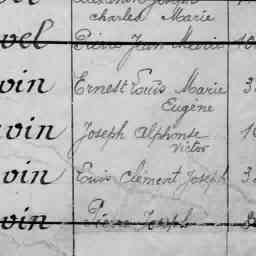 Charles Marie
vel Pierre Jean Marie 10
vin Ernest Louis Marie 3
Eugène
vin Joseph Alphonse 1
Victor
vin Louis Clément Joseph 3
vin Pierre Joseph